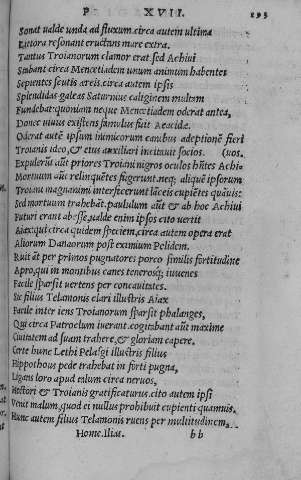 P XVII. 193
Sonat ualde unda ad fluxum, circa autem ultima
Littora resonant eructans mare extra.
Tantus Troianorum clamor erat. sed Achiui
Stabant circa Menœtiadem unum animum habentes
Sepientes scutis æreis. circa autem ipsis
Splendidas galeas Saturnius caliginem multam
Fundebat: quoniam neque Menœtiadem oderat antea,
Donec uiuus existens famulus fuit Aeacidæ.
Oderat autē ipsum inimicorum canibus adeptionē fieri
Troianis ideo, & eius auxiliari incitauit socios. (uos.
Expulerūt aūt priores Troiani nigros oculos hñtes Achi
Mortuum aūt relinquētes fugerunt. neq; aliquē ipsorum
Troiani magnanimi interfecerunt lāceis cupiētes quāuis:
Sed mortuum trahebāt. paululum aūt & ab hoc Achiui
Futuri erant abesse, ualde enim ipsos cito uertit
Aiax: qui circa quidem speciem, circa autem opera erat
Aliorum Danaorum post eximium Pelidem.
Ruit aūt per primos pugnatores porco similis fortitudine
Apro, qui in montibus canes tenerosq; iuuenes
Facile sparsit uertens per concauitates.
Sic filius Telamonis clari illustris Aiax
Facile inter iens Troianorum sparsit phalanges,
Qui circa Patroclum iuerant. cogitabant aūt maxime
Ciuitatem ad suam trahere, & gloriam capere.
Certe hunc Lethi Pelasgi illustris filius
Hippothous pede trahebat in forti pugna,
Ligans loro apud talum circa neruos,
Hectori & Troianis gratificaturus. cito autem ipsi
Venit malum, quod ei nullus prohibuit cupienti quamuis.
Hunc autem filius Telamonis ruens per multitudinem,
Home. Iliat. bb